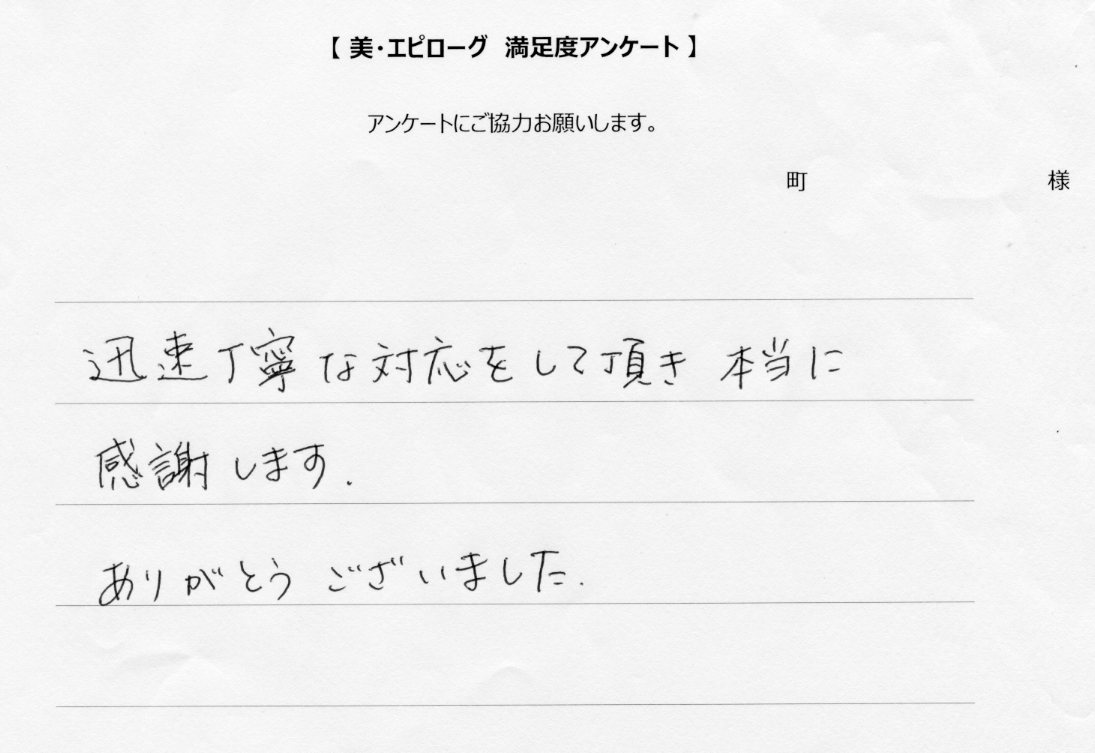 【 美・エピローグ 満足度アンケート 】
アンケートにご協力お願いします。
町 様
迅速丁寧な対応をして頂き 本当に
感謝します.
ありがとう ございました.